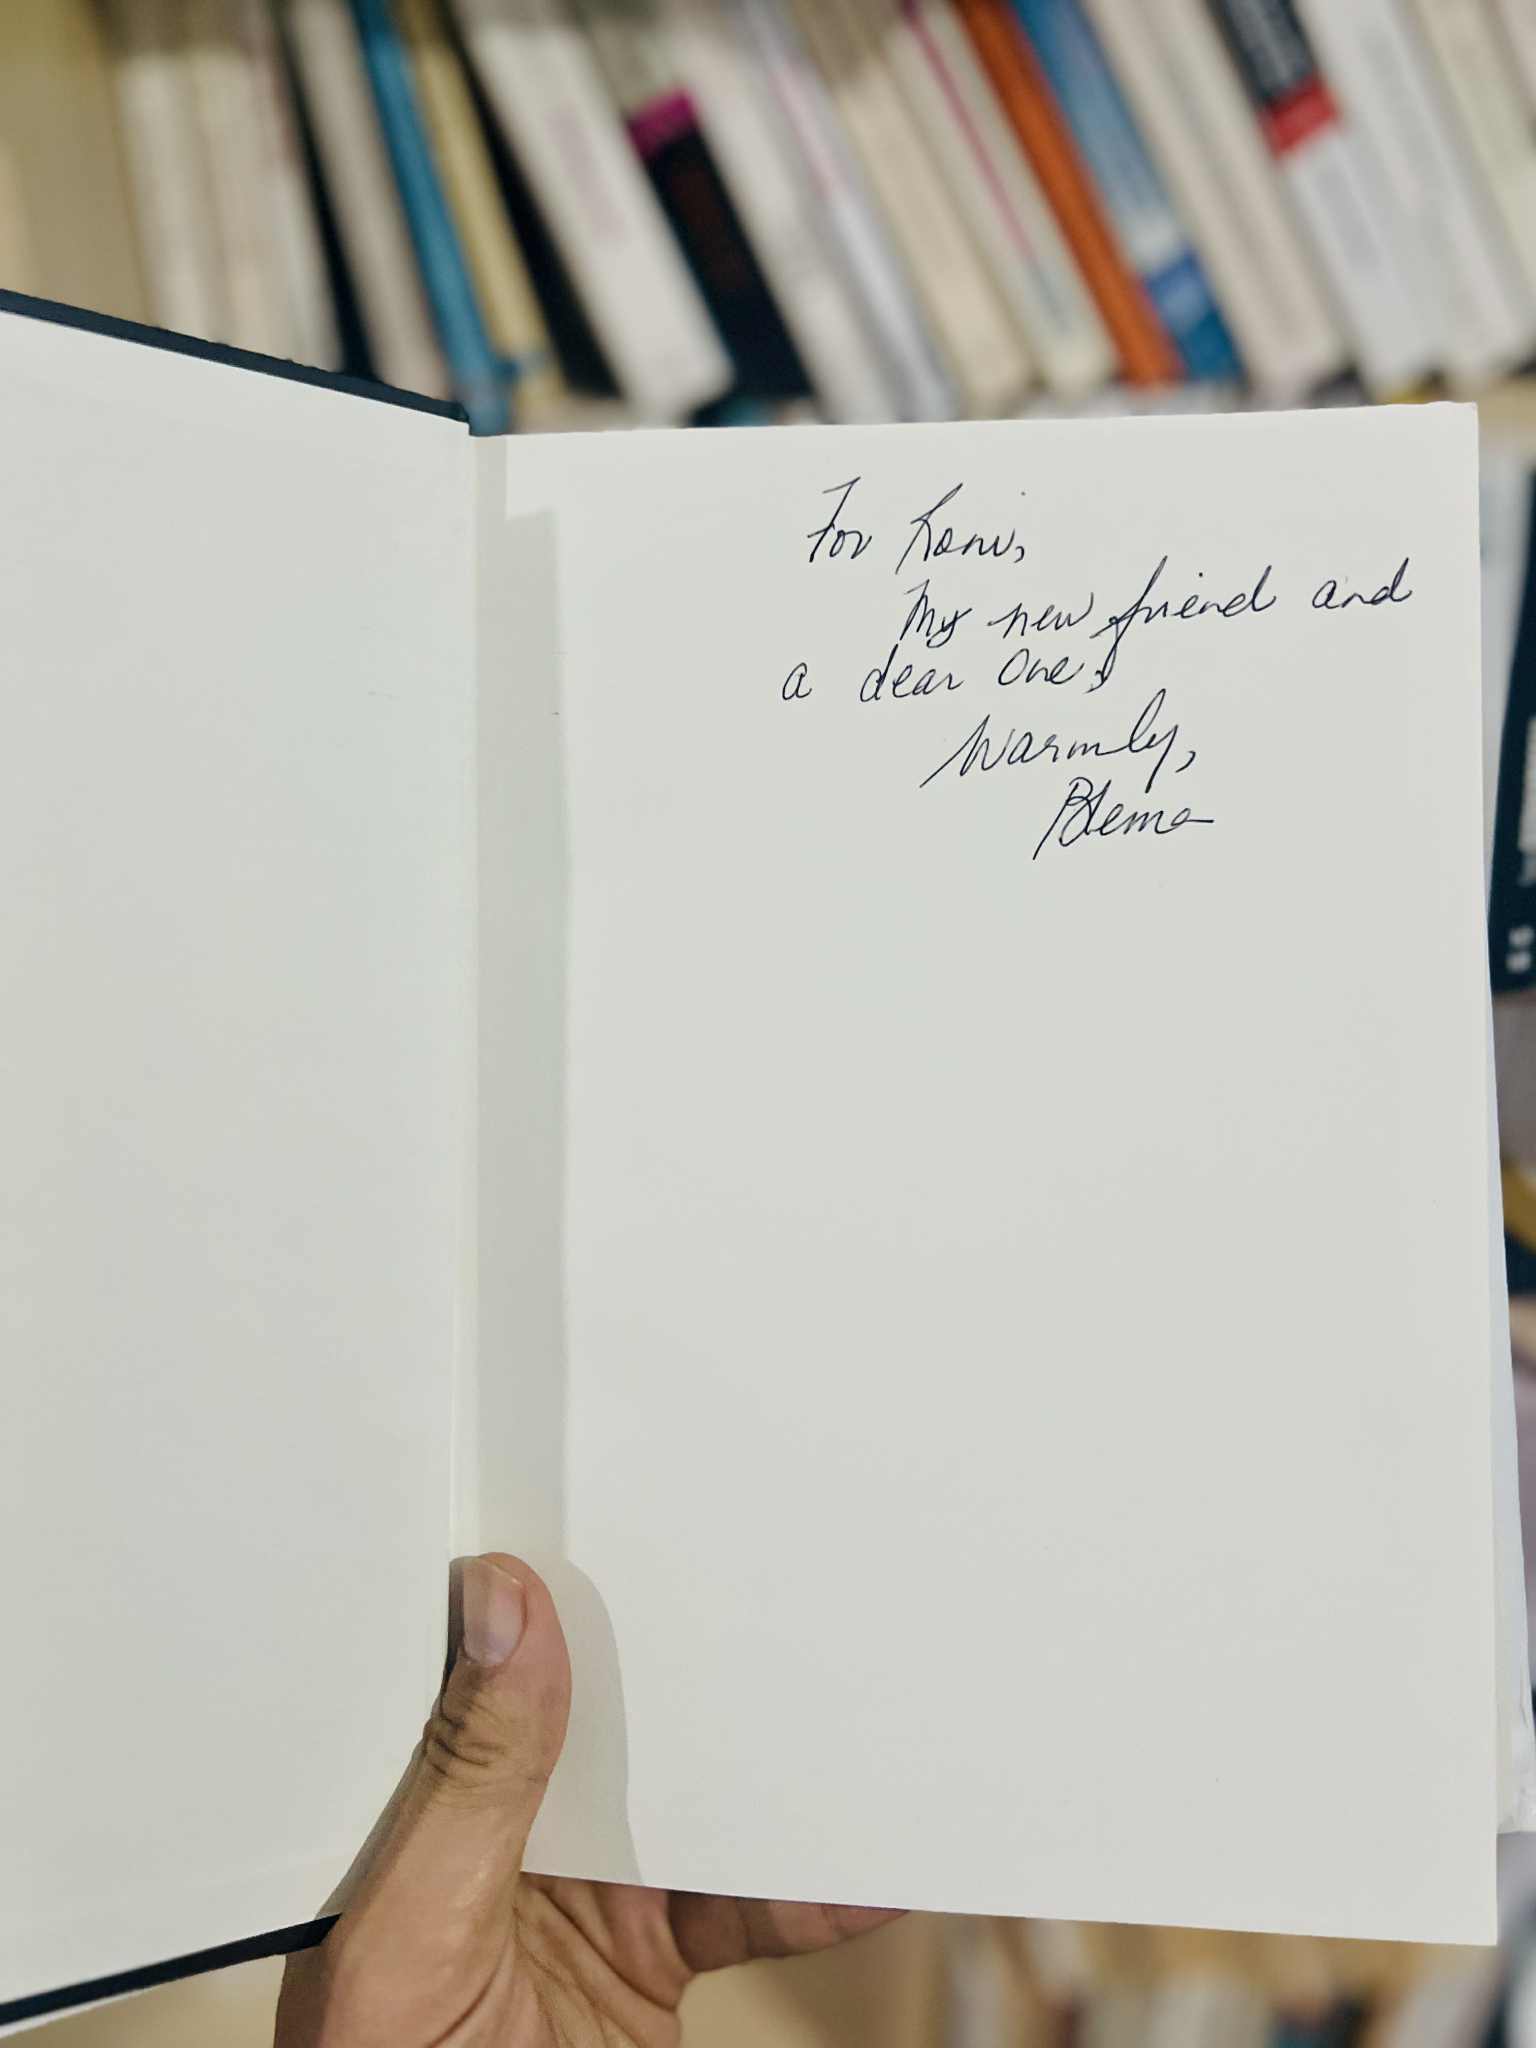 For
My new friend and
a dear one.
Warmly,